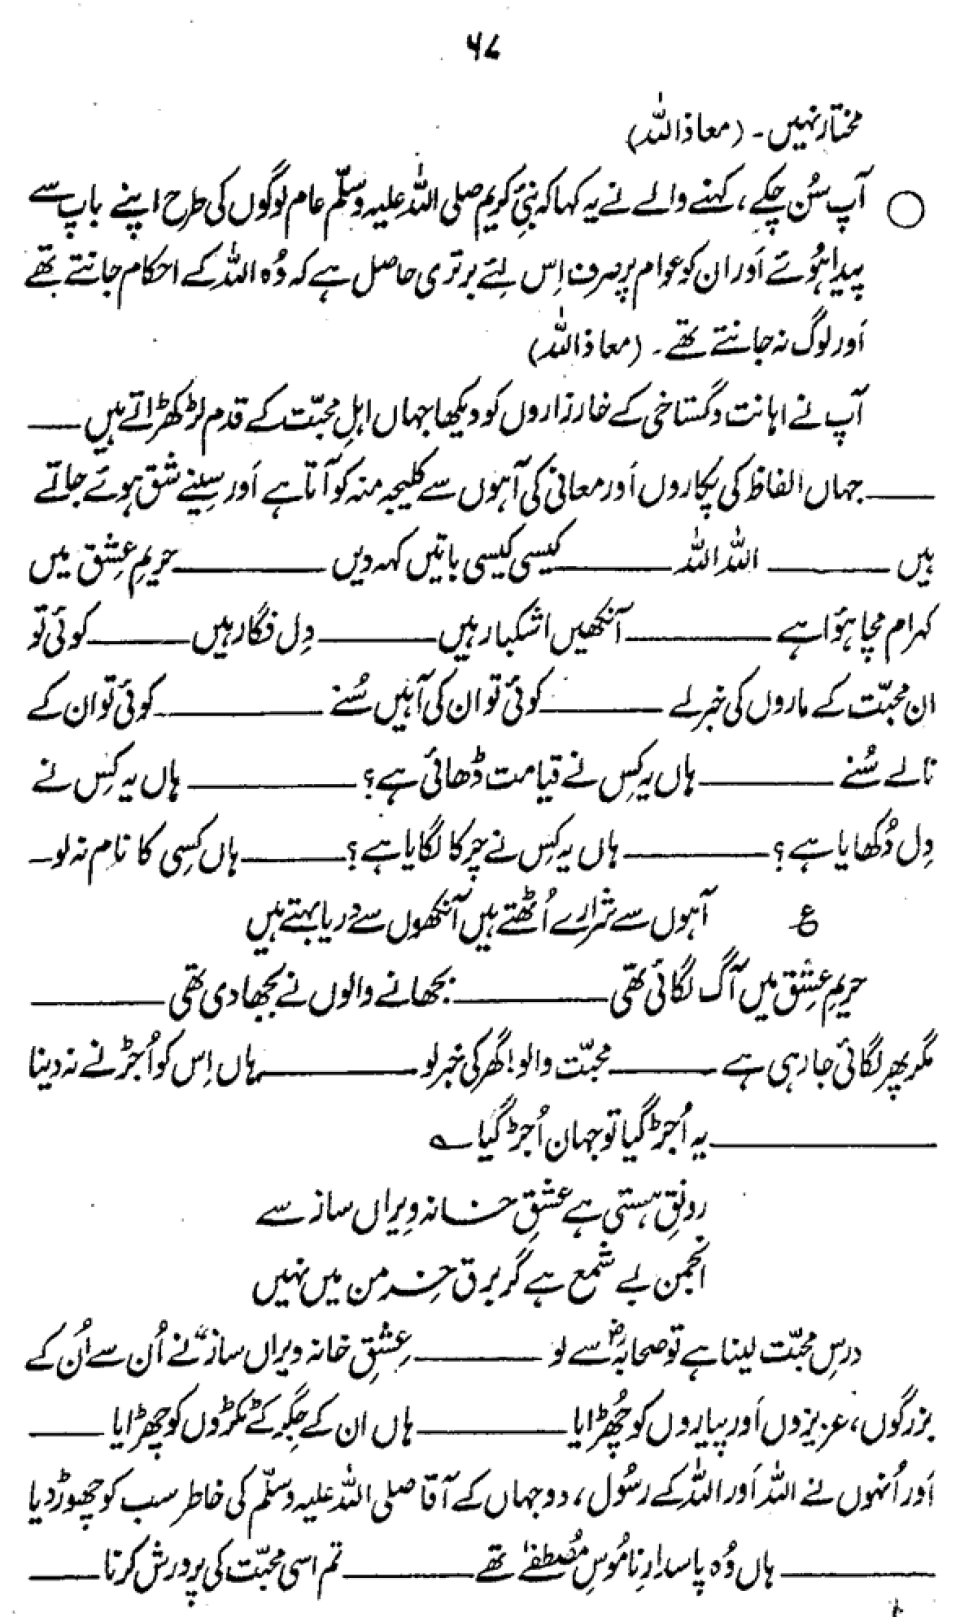 ۶۷
مختار نہیں۔ (معاذ اللہ)
○ آپ سُن چکے، کہنے والے نے یہ کہا کہ نبیِّ کریم صلی اللہ علیہ وسلّم عام لوگوں کی طرح اپنے باپ سے
پیدا ہُوئے اَور ان کو عوام پر صرف اِس لئے برتری حاصل ہے کہ وُہ اللہ کے احکام جانتے تھے
اَور لوگ نہ جانتے تھے۔ (معاذ اللہ)
آپ نے اہانت و گستاخی کے خارزاروں کو دیکھا جہاں اہلِ محبّت کے قدم لڑکھڑاتے ہیں ——
—— جہاں الفاظ کی پکاروں اَور معانی کی آہوں سے کلیجہ منہ کو آتا ہے اَور سِینے شق ہوئے جاتے
ہیں —— اللہ اللہ —— کیسی کیسی باتیں کہہ دیں —— حریمِ عِشق میں
کہرام مچا ہُوا ہے —— آنکھیں اشکبار ہیں —— دِل فگار ہیں —— کوئی تو
ان محبّت کے ماروں کی خبر لے —— کوئی تو ان کی آہیں سُنے —— کوئی تو ان کے
نالے سُنے —— ہاں یہ کِس نے قیامت ڈھائی ہے؟ —— ہاں یہ کِس نے
دِل دُکھایا ہے؟ —— ہاں یہ کِس نے چرکا لگایا ہے؟ —— ہاں کسِی کا نام نہ لو۔
ع آہوں سے شرارے اُٹھتے ہیں آنکھوں سے دریا بہتے ہیں
حریمِ عِشق میں آگ لگائی تھی —— بجھانے والوں نے بُجھا دی تھی ——
مگر پھر لگائی جا رہی ہے —— محبّت والو! گھر کی خبر لو —— ہاں اِس کو اُجڑنے نہ دینا
—— یہ اُجڑ گیا تو جہان اُجڑ گیا ؎
رونقِ ہستی ہے عشقِ خانہ ویراں ساز سے
انجمن بے شمع ہے گر برق خرمن میں نہیں
درسِ محبّت لینا ہے تو صحابہؓ سے لو —— عِشقِ خانہ ویراں ساز نے اُن سے اُن کے
بزرگوں، عزیزوں اَور پیاروں کو چھُڑایا —— ہاں ان کے جِگر کے ٹکڑوں کو چھڑایا ——
اَور اُنہوں نے اللہ اَور اللہ کے رسُول، دو جہاں کے آقا صلی اللہ علیہ وسلّم کی خاطر سب کو چھوڑ دیا
—— ہاں وُہ پاسدارِ نامُوسِ مُصطفےٰ تھے —— تم اسی محبّت کی پرورش کرنا ——